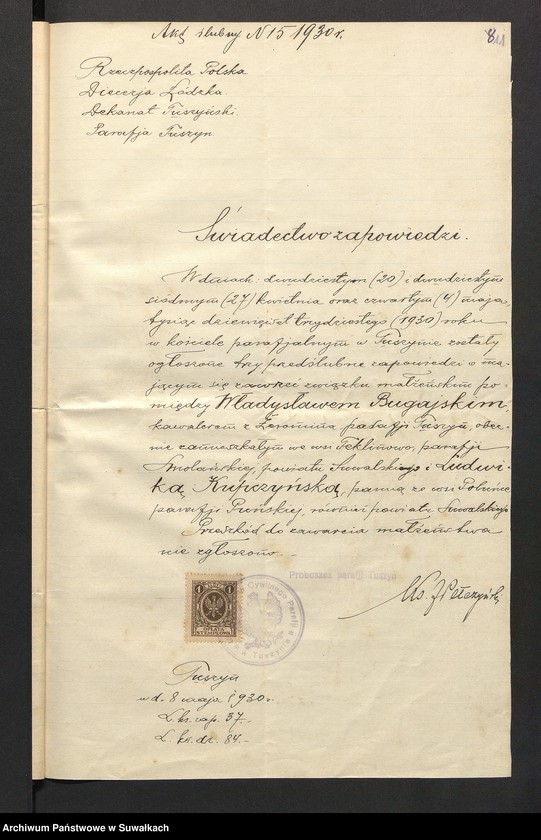 Akt ślubny N 15 1930 r.
811
Rzeczpospolita Polska
Diecezja Łódzka.
Dekanat Tuszyński.
Parafja Tuszyn.
Świadectwo zapowiedzi.
W dniach: dwudziestym (20) i dwudziestym
siódmym (27) kwietnia oraz czwartym (4) maja
tysiąc dziewięćset trzydziestego (1930) roku
w kościele parafjalnym w Tuszynie zostały
ogłoszone trzy przedślubne zapowiedzi o ma-
jącym się zawrzeć związku małżeńskim po-
między Władysławem Bugajskim,
kawalerem z Żeromina, parafji Tuszyn, obec-
nie zamieszkałym we wsi Teklinowo, parafji
Smolańskiej, powiatu Suwalskiego i Ludwi-
ką Kupczyńską, panną ze wsi
parafji Puńskiej, również powiatu Suwalskiego
Przeszkód do zawarcia małżeństwa
nie zgłoszono.
Proboszcz parafji Tuszyn
Ks. J.
1 1
OPŁATA
STEMPLOWA
Cywilnego Parafji
w Tuszynie
Tuszyn
w d. 8 maja 1930 r.
L. ks. zap. 37.
L. ks. dz. 84.
Archiwum Państwowe w Suwałkach